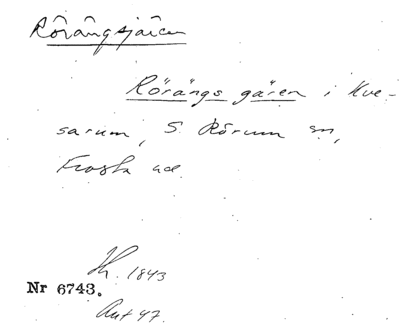 Rörängsjären
Rörängs gären i Kve-
sarum, S. Rörum sn,
Frosta hd.
Hr. 1843
Nr 6743.
Aut 47.